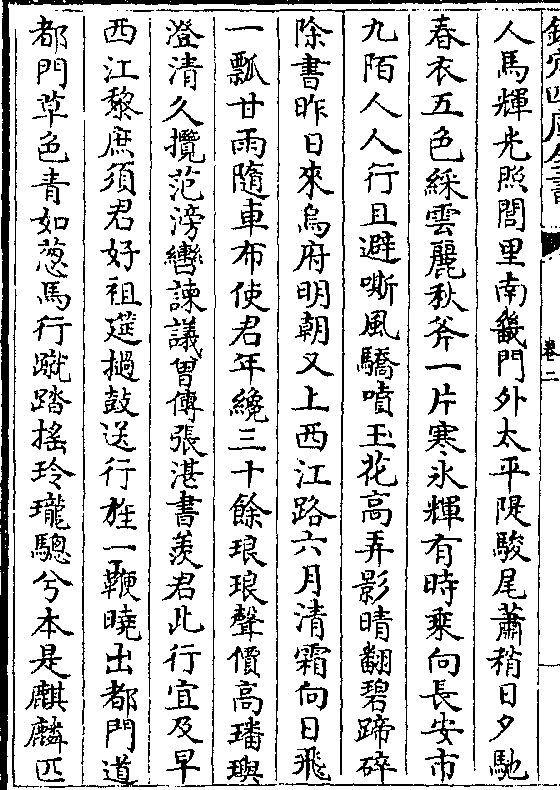 欽定四庫全書
卷二
人馬輝光照閭里南畿門外太平隄駿尾蕭稍日夕馳
春衣五色綵雲麗秋斧一片寒氷輝有時乘向長安市
九陌人人行且避嘶風驕噴玉花高弄影晴翻碧蹄碎
除書昨日來烏府明朝又上西江路六月清霜向日飛
一瓢甘雨隨車布使君年纔三十餘琅琅聲價高璠璵
澄清久攬范滂轡諫議曽傳張湛書羨君此行宜及早
西江黎庶須君好祖筵撾鼓送行旌一鞭曉出都門道
都門草色青如葱馬行蹴踏搖玲瓏驄兮本是麒麟匹